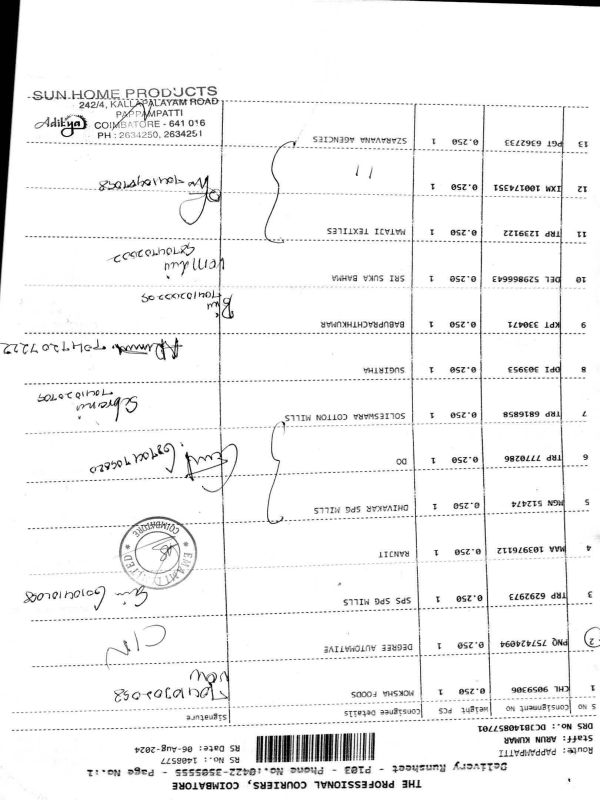 THE PROFESSIONAL COURIERS, COIMBATORE
Delivery Runsheet - P103 - Phone No:0422-3505555 - Page No.:1
Route: PAPPAMPATTI
Staff: ARUN KUMAR
DRS No.: DCJB140857701
RS No.: 1408577
RS Date: 06-Aug-2024
S NO Consignment No Weight PCS Consignee Details Signature
1 CHL 9059306 0.250 1 MOKSHA FOODS
2 PNQ 757424094 0.250 1 DEGREE AUTOMATIVE C/N
3 TRP 6292973 0.250 1 SPS SPG MILLS
4 MAA 103976112 0.250 1 RANJIT
EMAMI LIMITED
COIMBATORE
5 MGN 512474 0.250 1 DHIVAKAR SPG MILLS
6 TRP 7770286 0.250 1 DO
7 TRP 6816858 0.250 1 SOLIESWARA COTTON MILLS
8 DPI 303953 0.250 1 SUGIRTHA
9 KPT 330471 0.250 1 BABUPRACHTHKUMAR
10 DEL 529866643 0.250 1 SRI SUKA BAHMA
11 TRP 1239122 0.250 1 MATAJI TEXTILES
12 IXM 100174351 0.250 1 11
13 PGT 6362733 0.250 1 SZARAVANA AGENCIES
SUN HOME PRODUCTS
242/4, KALLAPALAYAM ROAD
PAPPAMPATTI
Aditya COIMBATORE - 641 016
PH : 2634250, 2634251